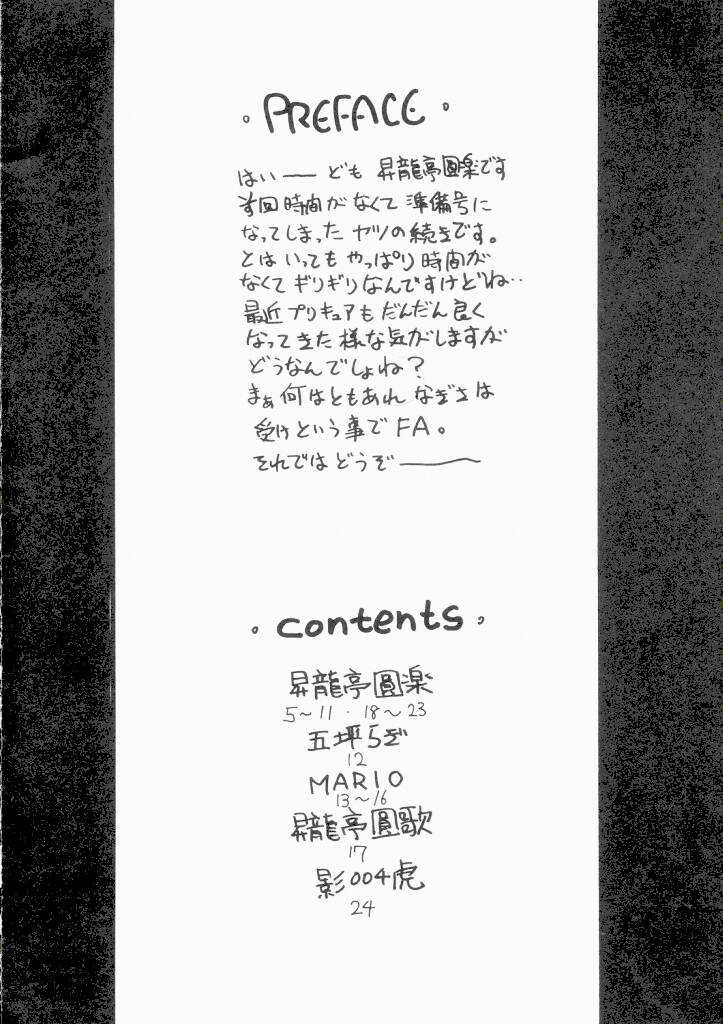 ・PREFACE・
はい――ども 昇龍亭圓楽です
前回時間がなくて準備号に
なってしまったヤツの続きです。
とはいってもやっぱり時間が
なくてギリギリなんですけどね‥
最近プリキュアもだんだん良く
なってきた様な気がしますが
どうなんでしょね?
まぁ何はともあれ なぎさは
受けという事でFA。
それではどうぞ――
・contents・
昇龍亭圓楽
5~11・18~23
五坪らぎ
12
MARIO
13~16
昇龍亭圓歌
17
影004虎
24